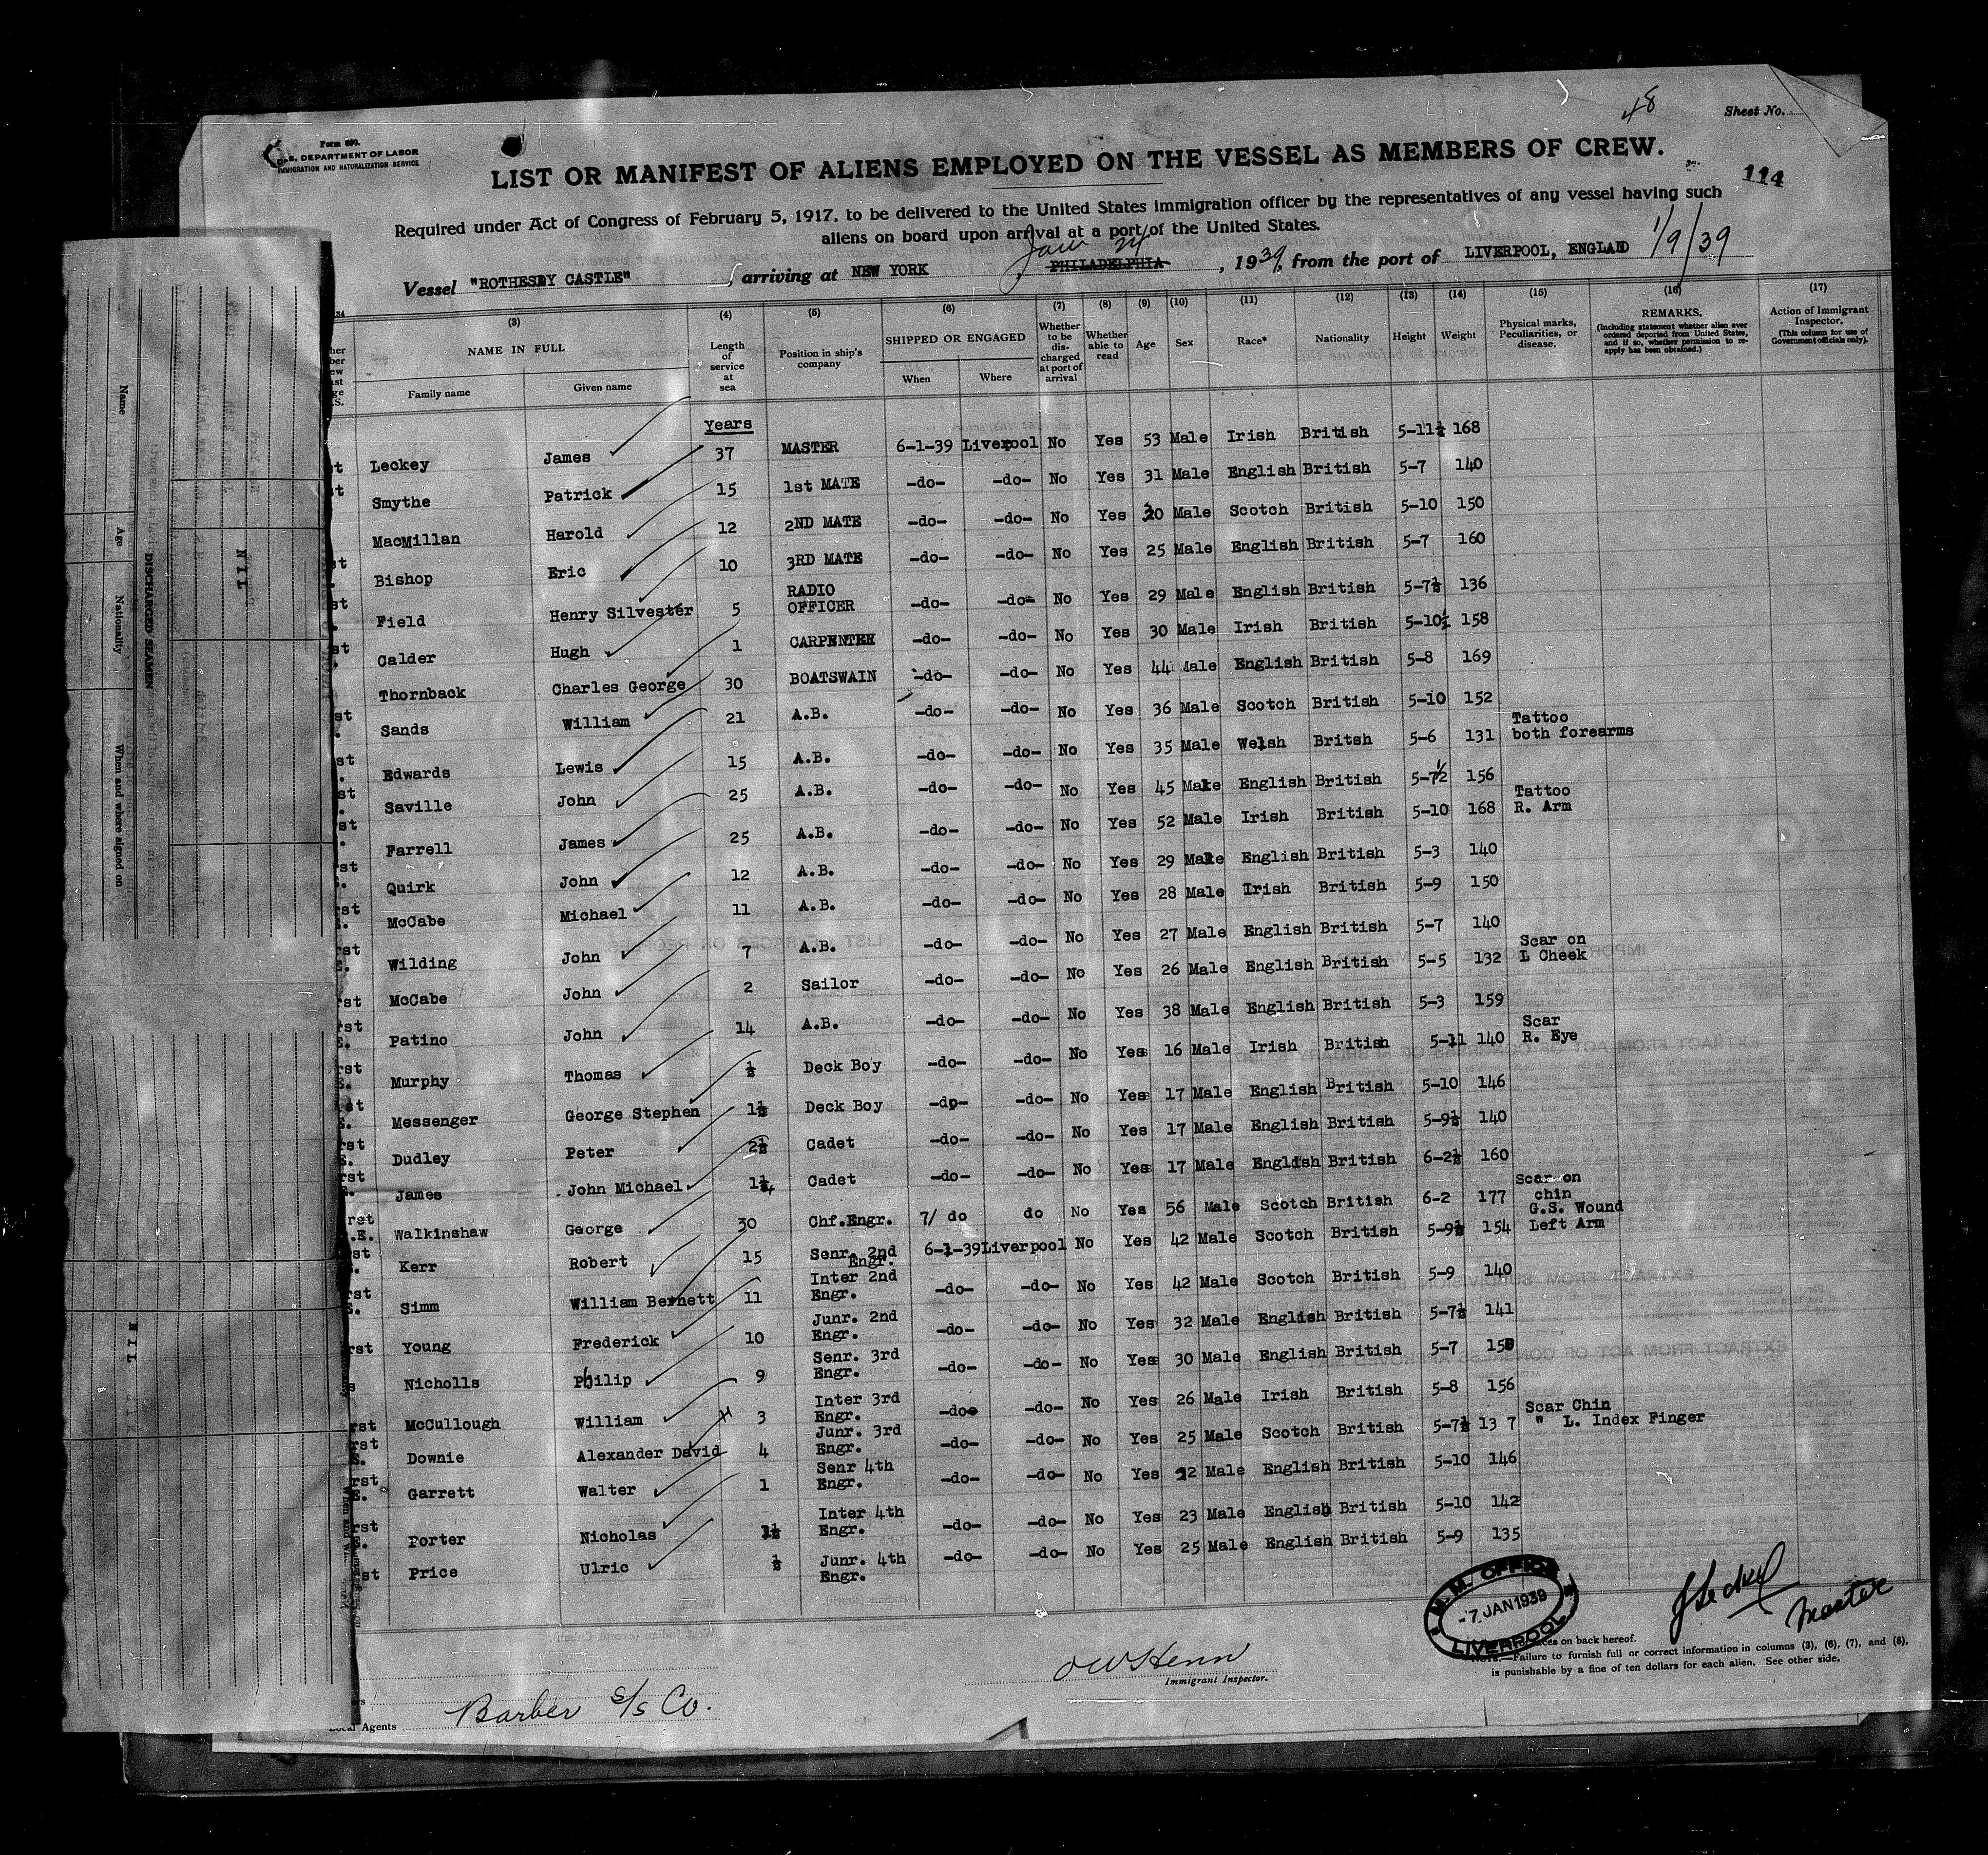 48
Sheet No.
Form 680.
U.S. DEPARTMENT OF LABOR
IMMIGRATION AND NATURALIZATION SERVICE
LIST OR MANIFEST OF ALIENS EMPLOYED ON THE VESSEL AS MEMBERS OF CREW.
114
Required under Act of Congress of February 5, 1917, to be delivered to the United States immigration officer by the representatives of any vessel having such
aliens on board upon arrival at a port of the United States.
Vessel "ROTHESAY CASTLE", arriving at NEW YORK PHILADELPHIA Jan 24, 1939, from the port of LIVERPOOL, ENGLAND 1/9/39
(3) (4) (5) (6) (7) (8) (9) (10) (11) (12) (13) (14) (15) (16) (17)
NAME IN FULL
Family name
Given name
Length of service at sea
Position in ship's company
SHIPPED OR ENGAGED
When
Where
Whether to be discharged at port of arrival
Whether able to read
Age
Sex
Race*
Nationality
Height
Weight
Physical marks, Peculiarities, or disease.
REMARKS.
(Including statement whether alien ever ordered deported from United States, and if so, whether permission to reapply has been obtained.)
Action of Immigrant Inspector.
(This column for use of Government officials only).
Years
Leckey James 37 MASTER 6-1-39 Liverpool No Yes 53 Male Irish British 5-11½ 168
Smythe Patrick 15 1st MATE -do- -do- No Yes 31 Male English British 5-7 140
MacMillan Harold 12 2ND MATE -do- -do- No Yes 30 Male Scotch British 5-10 150
Bishop Eric 10 3RD MATE -do- -do- No Yes 25 Male English British 5-7 160
Field Henry Silvester 5 RADIO OFFICER -do- -do- No Yes 29 Male English British 5-7½ 136
Calder Hugh 1 CARPENTER -do- -do- No Yes 30 Male Irish British 5-10½ 158
Thornback Charles George 30 BOATSWAIN -do- -do- No Yes 44 Male English British 5-8 169
Sands William 21 A.B. -do- -do- No Yes 36 Male Scotch British 5-10 152
Edwards Lewis 15 A.B. -do- -do- No Yes 35 Male Welsh Britsh 5-6 131 Tattoo both forearms
Saville John 25 A.B. -do- -do- No Yes 45 Male English British 5-7½ 156
Farrell James 25 A.B. -do- -do- No Yes 52 Male Irish British 5-10 168 Tattoo R. Arm
Quirk John 12 A.B. -do- -do- No Yes 29 Male English British 5-3 140
McCabe Michael 11 A.B. -do- -do- No Yes 28 Male Irish British 5-9 150
Wilding John 7 A.B. -do- -do- No Yes 27 Male English British 5-7 140
McCabe John 2 Sailor -do- -do- No Yes 26 Male English British 5-5 132 Scar on L Cheek
Patino John 14 A.B. -do- -do- No Yes 38 Male English British 5-3 159
Murphy Thomas ½ Deck Boy -do- -do- No Yes 16 Male Irish British 5-11 140 Scar R. Eye
Messenger George Stephen 1½ Deck Boy -do- -do- No Yes 17 Male English British 5-10 146
Dudley Peter 2½ Cadet -do- -do- No Yes 17 Male English British 5-9½ 140
James John Michael 1¼ Cadet -do- -do- No Yes 17 Male English British 6-2½ 160
Walkinshaw George 30 Chf.Engr. 7/ do do No Yes 56 Male Scotch British 6-2 177 Scar on chin
Kerr Robert 15 Senr. 2nd Engr. 6-1-39 Liverpool No Yes 42 Male Scotch British 5-9½ 154 G.S. Wound Left Arm
Simm William Bernett 11 Inter 2nd Engr. -do- -do- No Yes 42 Male Scotch British 5-9 140
Young Frederick 10 Junr. 2nd Engr. -do- -do- No Yes 32 Male English British 5-7½ 141
Nicholls Philip 9 Senr. 3rd Engr. -do- -do- No Yes 30 Male English British 5-7 150
McCullough William 3 Inter 3rd Engr. -do- -do- No Yes 26 Male Irish British 5-8 156
Downie Alexander David 4 Junr. 3rd Engr. -do- -do- No Yes 25 Male Scotch British 5-7½ 13 7 Scar Chin " L. Index Finger
Garrett Walter 1 Senr 4th Engr. -do- -do- No Yes 22 Male English British 5-10 146
Porter Nicholas 1½ Inter 4th Engr. -do- -do- No Yes 23 Male English British 5-10 142
Price Ulric ½ Junr. 4th Engr. -do- -do- No Yes 25 Male English British 5-9 135
M.M. OFFICE
-7 JAN 1939
LIVERPOOL
J Leckey Master
on back hereof.
NOTE.—Failure to furnish full or correct information in columns (3), (6), (7), and (8),
is punishable by a fine of ten dollars for each alien. See other side.
O W Henn
Immigrant Inspector.
Local Agents Barber S/S Co.
Name
Age
Nationality
When and where signed on
DISCHARGED SEAMEN
NIL
NIL